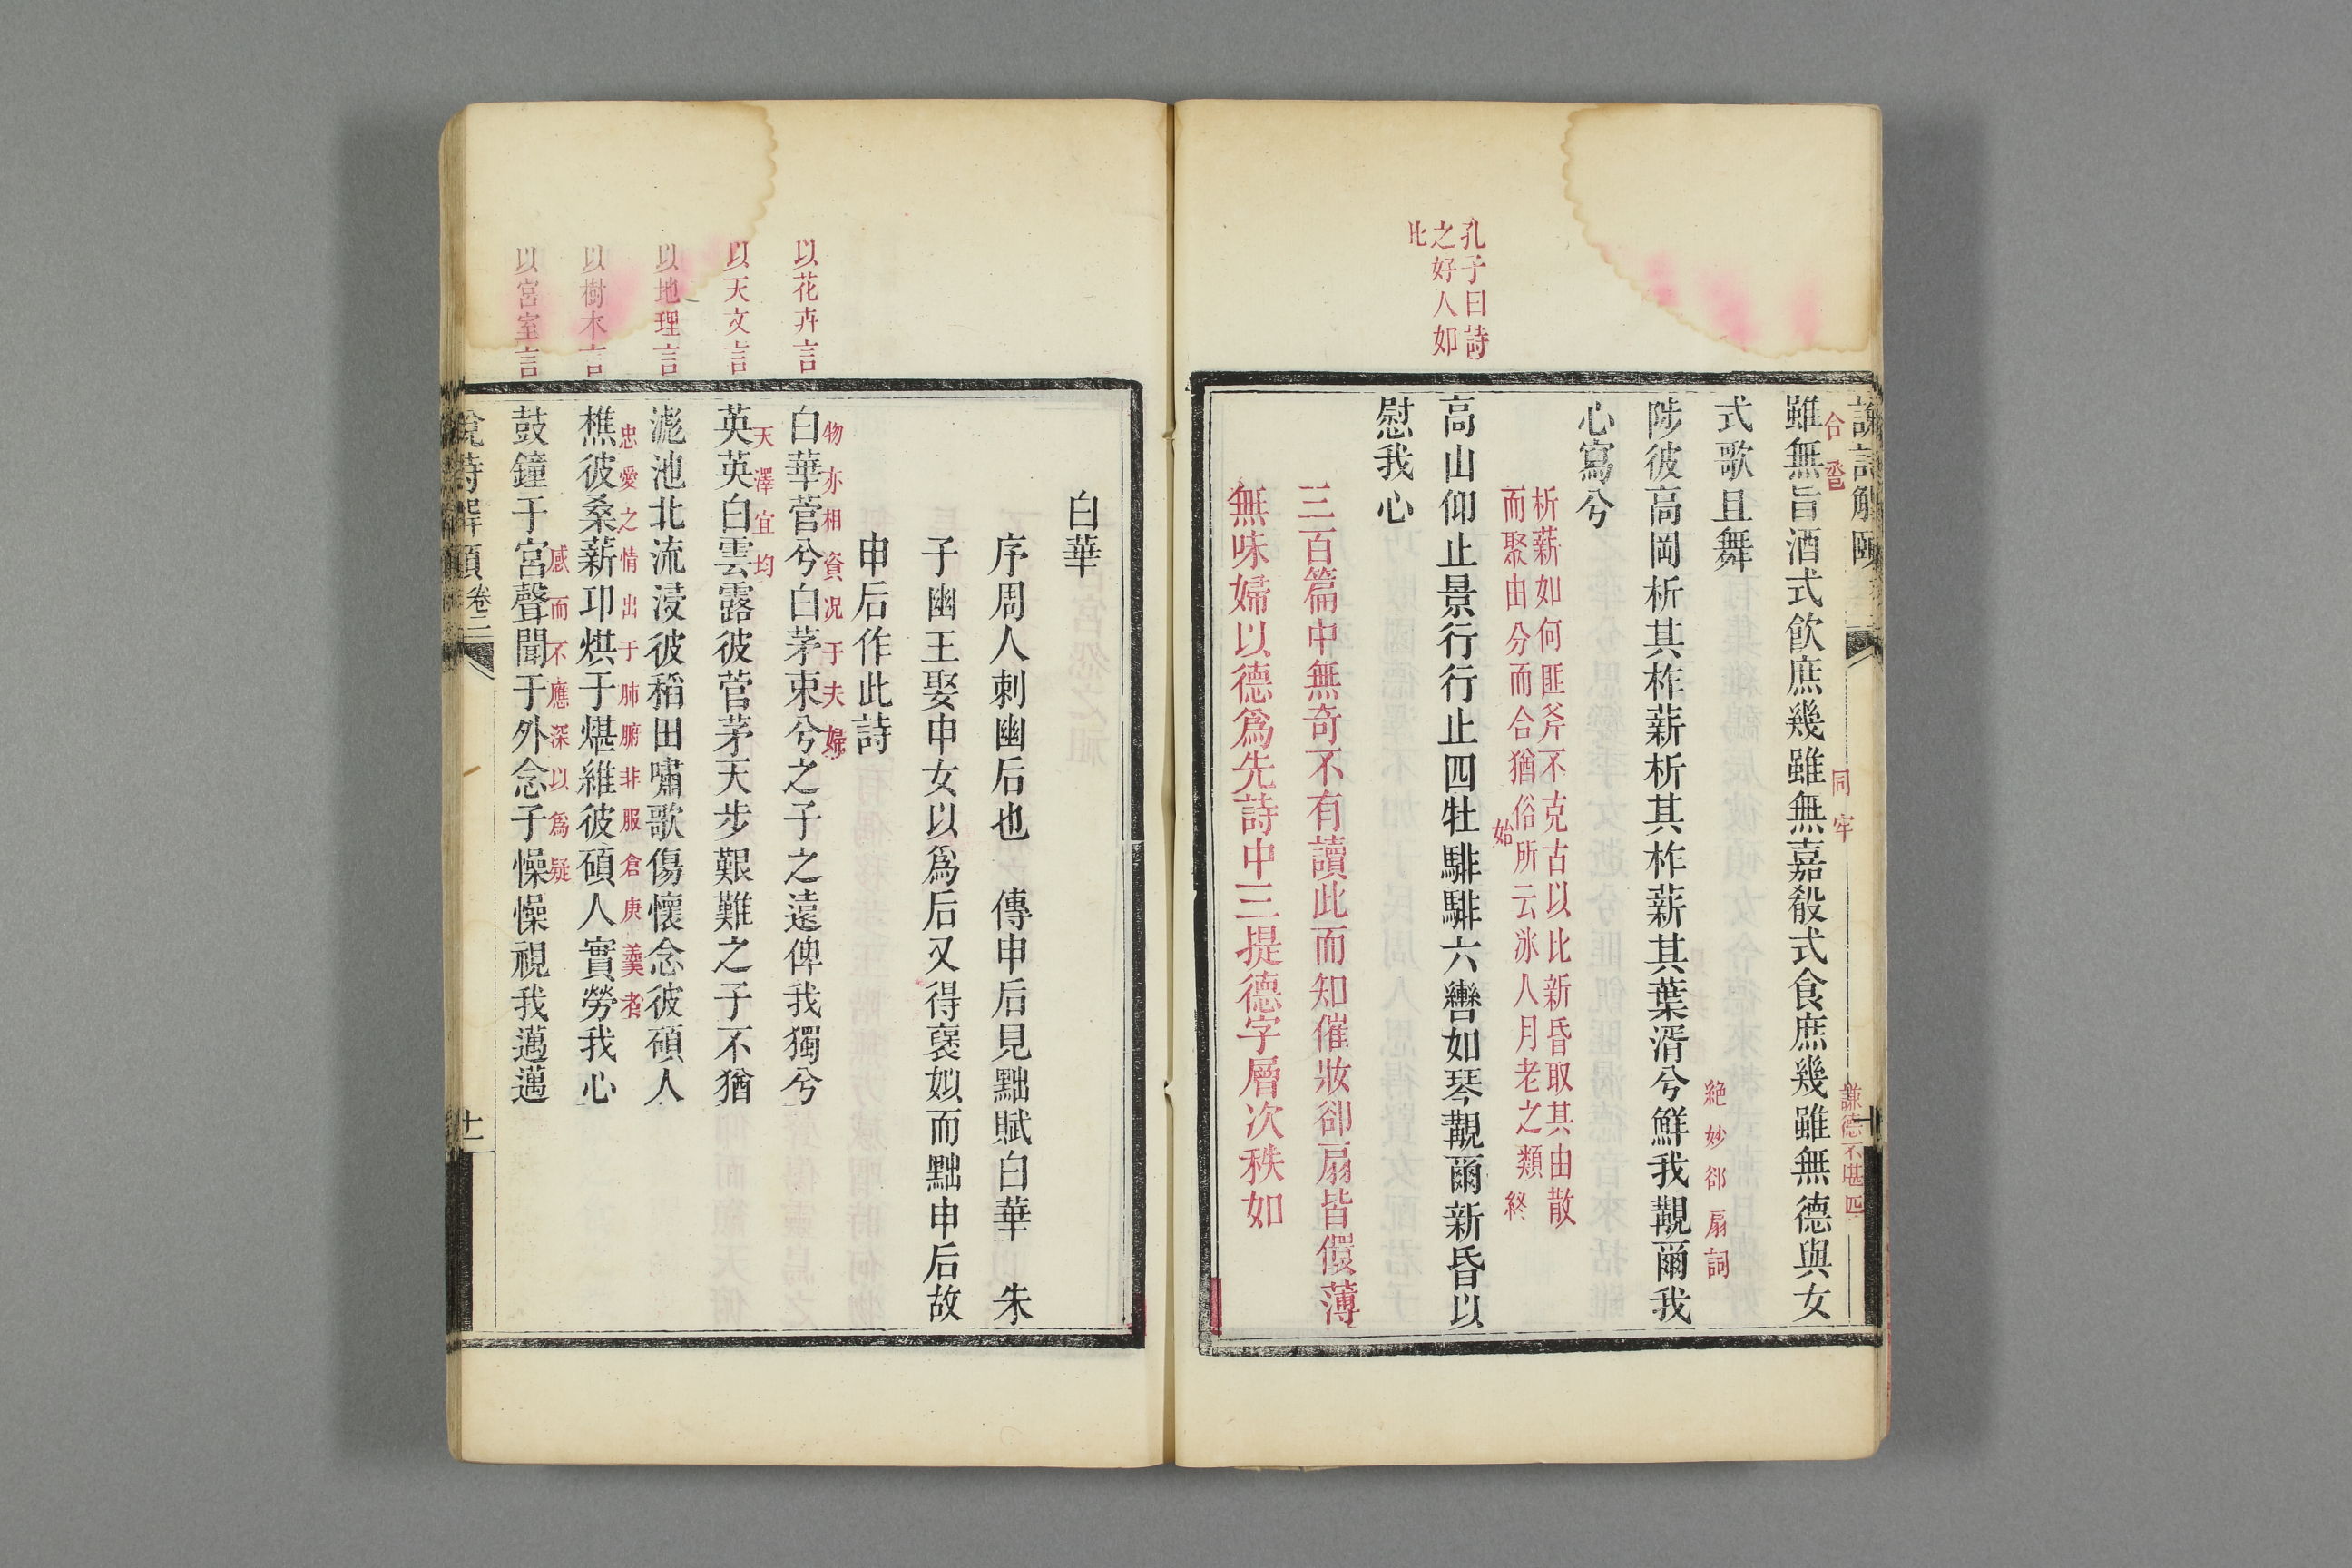 孔子曰詩
之好人如
此
說詩解頤
合巹
同牢
謙德不堪匹
雖無旨酒式飲庶幾雖無嘉殽式食庶幾雖無德與女
式歌且舞
絶妙郤扇詞
陟彼高岡析其柞薪析其柞薪其葉湑兮鮮我覯爾我
心寫兮
析薪如何匪斧不克古以比新昏取其由散
而聚由分而合猶俗所云冰人月老之類終
始
高山仰止景行行止四牡騑騑六轡如琴覯爾新昏以
慰我心
三百篇中無奇不有讀此而知催妝郤扇皆儇薄
無味婦以德爲先詩中三提德字層次秩如
白華
序周人刺幽后也　傳申后見黜賦白華　朱
子幽王娶申女以爲后又得褒姒而黜申后故
申后作此詩
以花卉言
物亦相資況于夫婦
白華菅兮白茅束兮之子之遠俾我獨兮
以天文言
天澤宜均
英英白雲露彼菅茅天步艱難之子不猶
以地理言
滮池北流浸彼稻田嘯歌傷懷念彼碩人
以樹木言
忠愛之情出于肺腑非服倉庚羹者
樵彼桑薪卭烘于煁維彼碩人實勞我心
以宮室言
感而不應深以爲疑
鼓鐘于宮聲聞于外念子懆懆視我邁邁
說詩解頤
卷二
十一